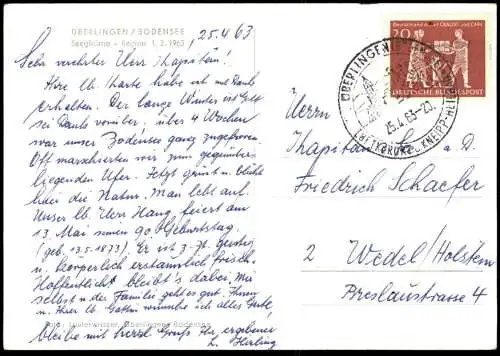 ÜBERLINGEN / BODENSEE
Seegfrörne - Beginn 1. 2. 1963
25.4.63
Sehr verehrter Herr Kapitän!
Ihre lb. Karte habe ich mit Dank
erhalten. Der lange Winter ist Gott
sei Dank vorüber. über 4 Wochen
war unser Bodensee ganz zugefroren
Oft marschierten wir zum gegenüber-
liegenden Ufer. Jetzt grünt u. blüht
die Natur. Man lebt auf.
Unser lb. Herr Haug feiert am
13. Mai seinen 90. Geburtstag.
(geb. 13.5.1873) Er ist z. Zt. geistig
u. körperlich erstaunlich frisch.
Hoffentlich bleibt's dabei. Mir
selbst u. der Familie geht es gut. Ihnen
u. Ihrer lb. Gattin wünsche ich alles Gute!
bleibe mit herzl. Gruß Ihr ergebener
Foto: Lauterwasser, Überlingen Bodensee
20
DEUTSCHE BUNDESPOST
ÜBERLINGEN
25.4.63-20
KNEIPP-HEILBAD
Herrn
Kapitän a. D.
Friedrich Schaefer
2 Wedel/Holstein
Breslaustrasse 4